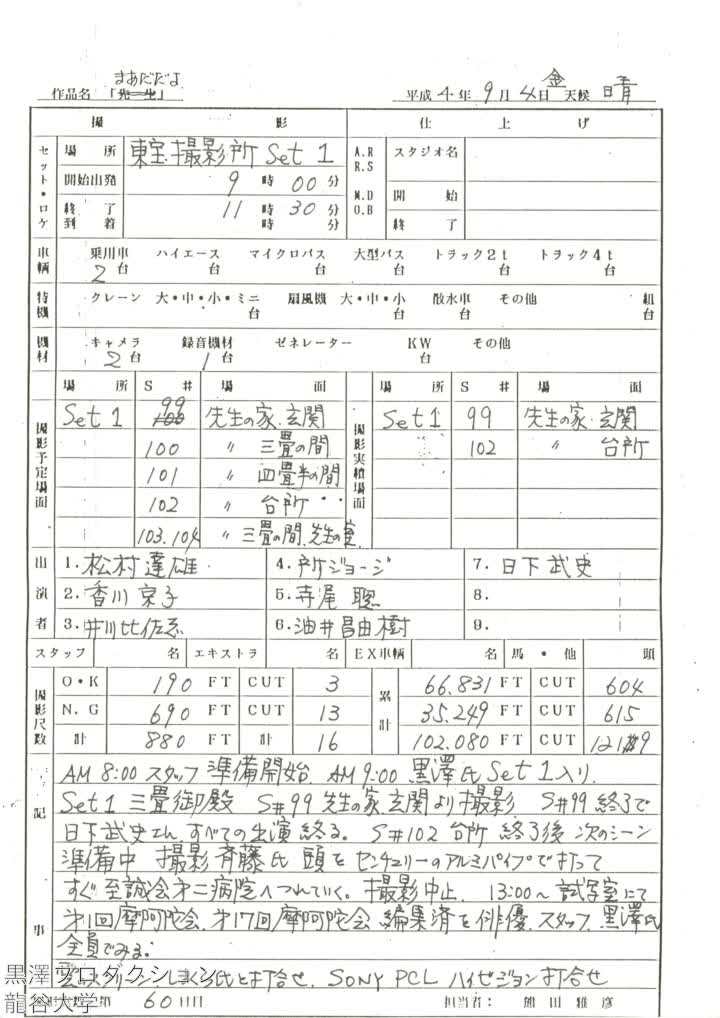 まあだだよ
作品名 「先生」 平成 4 年 9 月 4 日 金 天候 晴
撮 影 仕 上 げ
セット・ロケ 場 所 東宝撮影所 Set 1 A.R R.S スタジオ名
開始出発 9 時 00 分 M.D O.B 開 始
終 了 11 時 30 分 終 了
到 着 時 分
車輌 乗用車 ハイエース マイクロバス 大型バス トラック2t トラック4t
2 台 台 台 台 台 台
特機 クレーン 大・中・小・ミニ 扇風機 大・中・小 散水車 その他 組
台 台 台
機材 キャメラ 録音機材 ゼネレーター KW その他
2 台 1 台 台
場 所 S # 場 面 場 所 S # 場 面
撮影予定場面 Set 1 99 先生の家.玄関 撮影実績場面 Set 1 99 先生の家.玄関
100 〃 三畳の間 102 〃 台所
101 〃 四畳半の間
102 〃 台所
103.104 〃 三畳の間.先生の家
出演者 1. 松村達雄 4. 所ジョージ 7. 日下武史
2. 香川京子 5. 寺尾聰 8.
3. 井川比佐志 6. 油井昌由樹 9.
スタッフ 名 エキストラ 名 EX車輌 名 馬・他 頭
撮影尺数 O・K 190 FT CUT 3 累計 66.831 FT CUT 604
N.G 690 FT CUT 13 35.249 FT CUT 615
計 880 FT 計 16 102.080 FT CUT 1219
記事 AM 8:00 スタッフ準備開始. AM 9:00 黒澤氏 Set 1入り.
Set 1 三畳御殿 S#99 先生の家.玄関より撮影 S#99 終了で
日下武史さん すべての出演終る。 S#102 台所 終了後 次のシーン
準備中 撮影 斉藤氏 頭を センチュリーのアルミパイプで打って
すぐ至誠会第二病院へつれていく。撮影中止. 13:00〜 試写室にて
第1回摩阿陀会.第17回摩阿陀会 編集済を俳優.スタッフ.黒澤氏
全員でみる。
氏と打合せ. SONY PCL ハイビジョン打合せ
第 60 日目 担当者: 熊田雅彦
黒澤プロダクション
龍谷大学